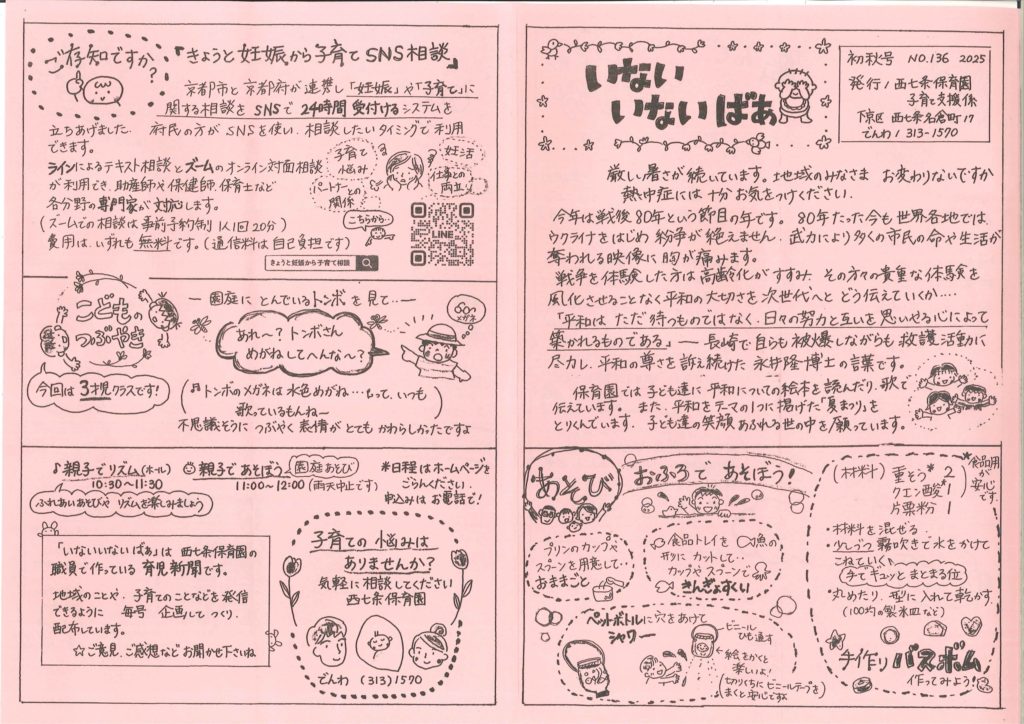 いない
いないばあ
初秋号 NO.136 2025
発行/西七条保育園
子育て支援係
下京区 西七条名倉町17
でんわ/313-1570
厳しい暑さが続いています。地域のみなさま お変わりないですか
熱中症には十分お気をつけください.
今年は戦後80年という節目の年です。80年たった今も世界各地では
ウクライナをはじめ紛争が絶えません. 武力により多くの市民の命や生活が
奪われる映像に胸が痛みます。
戦争を体験した方は高齢化がすすみ その方々の貴重な体験を
風化させることなく平和の大切さを次世代へと どう伝えていくか....
「平和は ただ待つものではなく、日々の努力と互いを思いやる心によって
築かれるものである」― 長崎で自らも被爆しながらも救護活動に
尽力し、平和の尊さを訴え続けた永井隆博士の言葉です。
保育園では子ども達に平和についての絵本を読んだり、歌で
伝えています。また、平和をテーマの1つに掲げた「夏まつり」を
とりくんでいます. 子ども達の笑顔あふれる世の中を願っています。
あそび
おふろで あそぼう!
プリンのカップや
スプーンを用意して..
おままごと
食品トレイを魚の
形にカットして..
カップやスプーンで
きんぎょすくい
ペットボトルに穴をあけて
シャワー
ビニール
ひも通す
絵をかくと
楽しいよ!
(切りくちにビニールテープを
まくと安心です)
(材料) 重そう* 2
クエン酸* 1
片栗粉 1
*食品用
が
安心
です。
・材料を混ぜる..
・少しづつ霧吹きで水をかけて
こねていく
手でギュッとまとまる位
・丸めたり、型に入れて乾かす.
(100均の製氷皿など)
手作り バスボム
作ってみよう!
ご存知ですか?
「きょうと妊娠から子育てSNS相談」
京都市と京都府が連携し「妊娠」や「子育て」に
関する相談をSNSで24時間受付けるシステムを
立ちあげました. 府民の方がSNSを使い、相談したいタイミングで利用
できます。
ラインによるテキスト相談とズームのオンライン対面相談
が利用でき、助産師や保健師、保育士など
各分野の専門家が対応します。
(ズームでの相談は事前予約制 1人1回20分)
費用は、いずれも無料です。(通信料は自己負担です)
子育て
悩み
パートナーとの
関係
妊活
仕事との
両立
こちらから..
LINE
きょうと妊娠から子育て相談
こどもの
つぶやき
今回は3才児クラスです!
― 園庭に とんでいるトンボを見て...―
あれ〜? トンボさん
めがねしてへんな〜?
メガネ
(♪トンボのメガネは水色めがね...って、いつも
歌っているもんね〜
不思議そうにつぶやく表情がとてもかわらしかったですよ
♪親子でリズム(ホール)
10:30〜11:30
ふれあいあそびや リズムを楽しみましょう
親子であそぼう 園庭あそび
11:00〜12:00 (雨天中止です)
*日程はホームページを
ごらんください.
申込みはお電話で!
「いないいないばぁ」は 西七条保育園の
職員で作っている 育児新聞です。
地域のことや、子育てのことなどを発信
できるように 毎号 企画して つくり、
配布しています。
☆ご意見、ご感想など お聞かせ下さいね
子育ての悩みは
ありませんか?
気軽に相談してください
西七条保育園
でんわ (313)1570